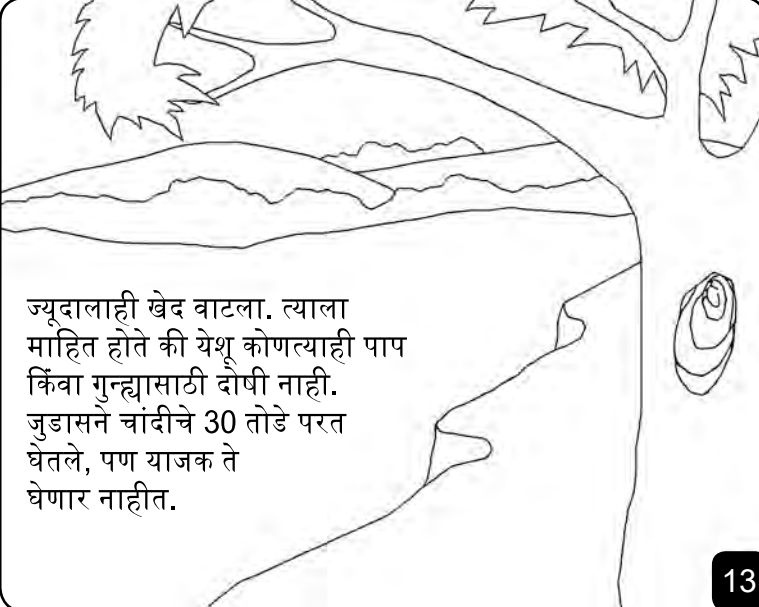 ज्यूदालाही खेद वाटला. त्याला
माहित होते की येशू कोणत्याही पाप
किंवा गुन्ह्यासाठी दोषी नाही.
जुडासने चांदीचे 30 तोडे परत
घेतले, पण याजक ते
घेणार नाहीत.
13